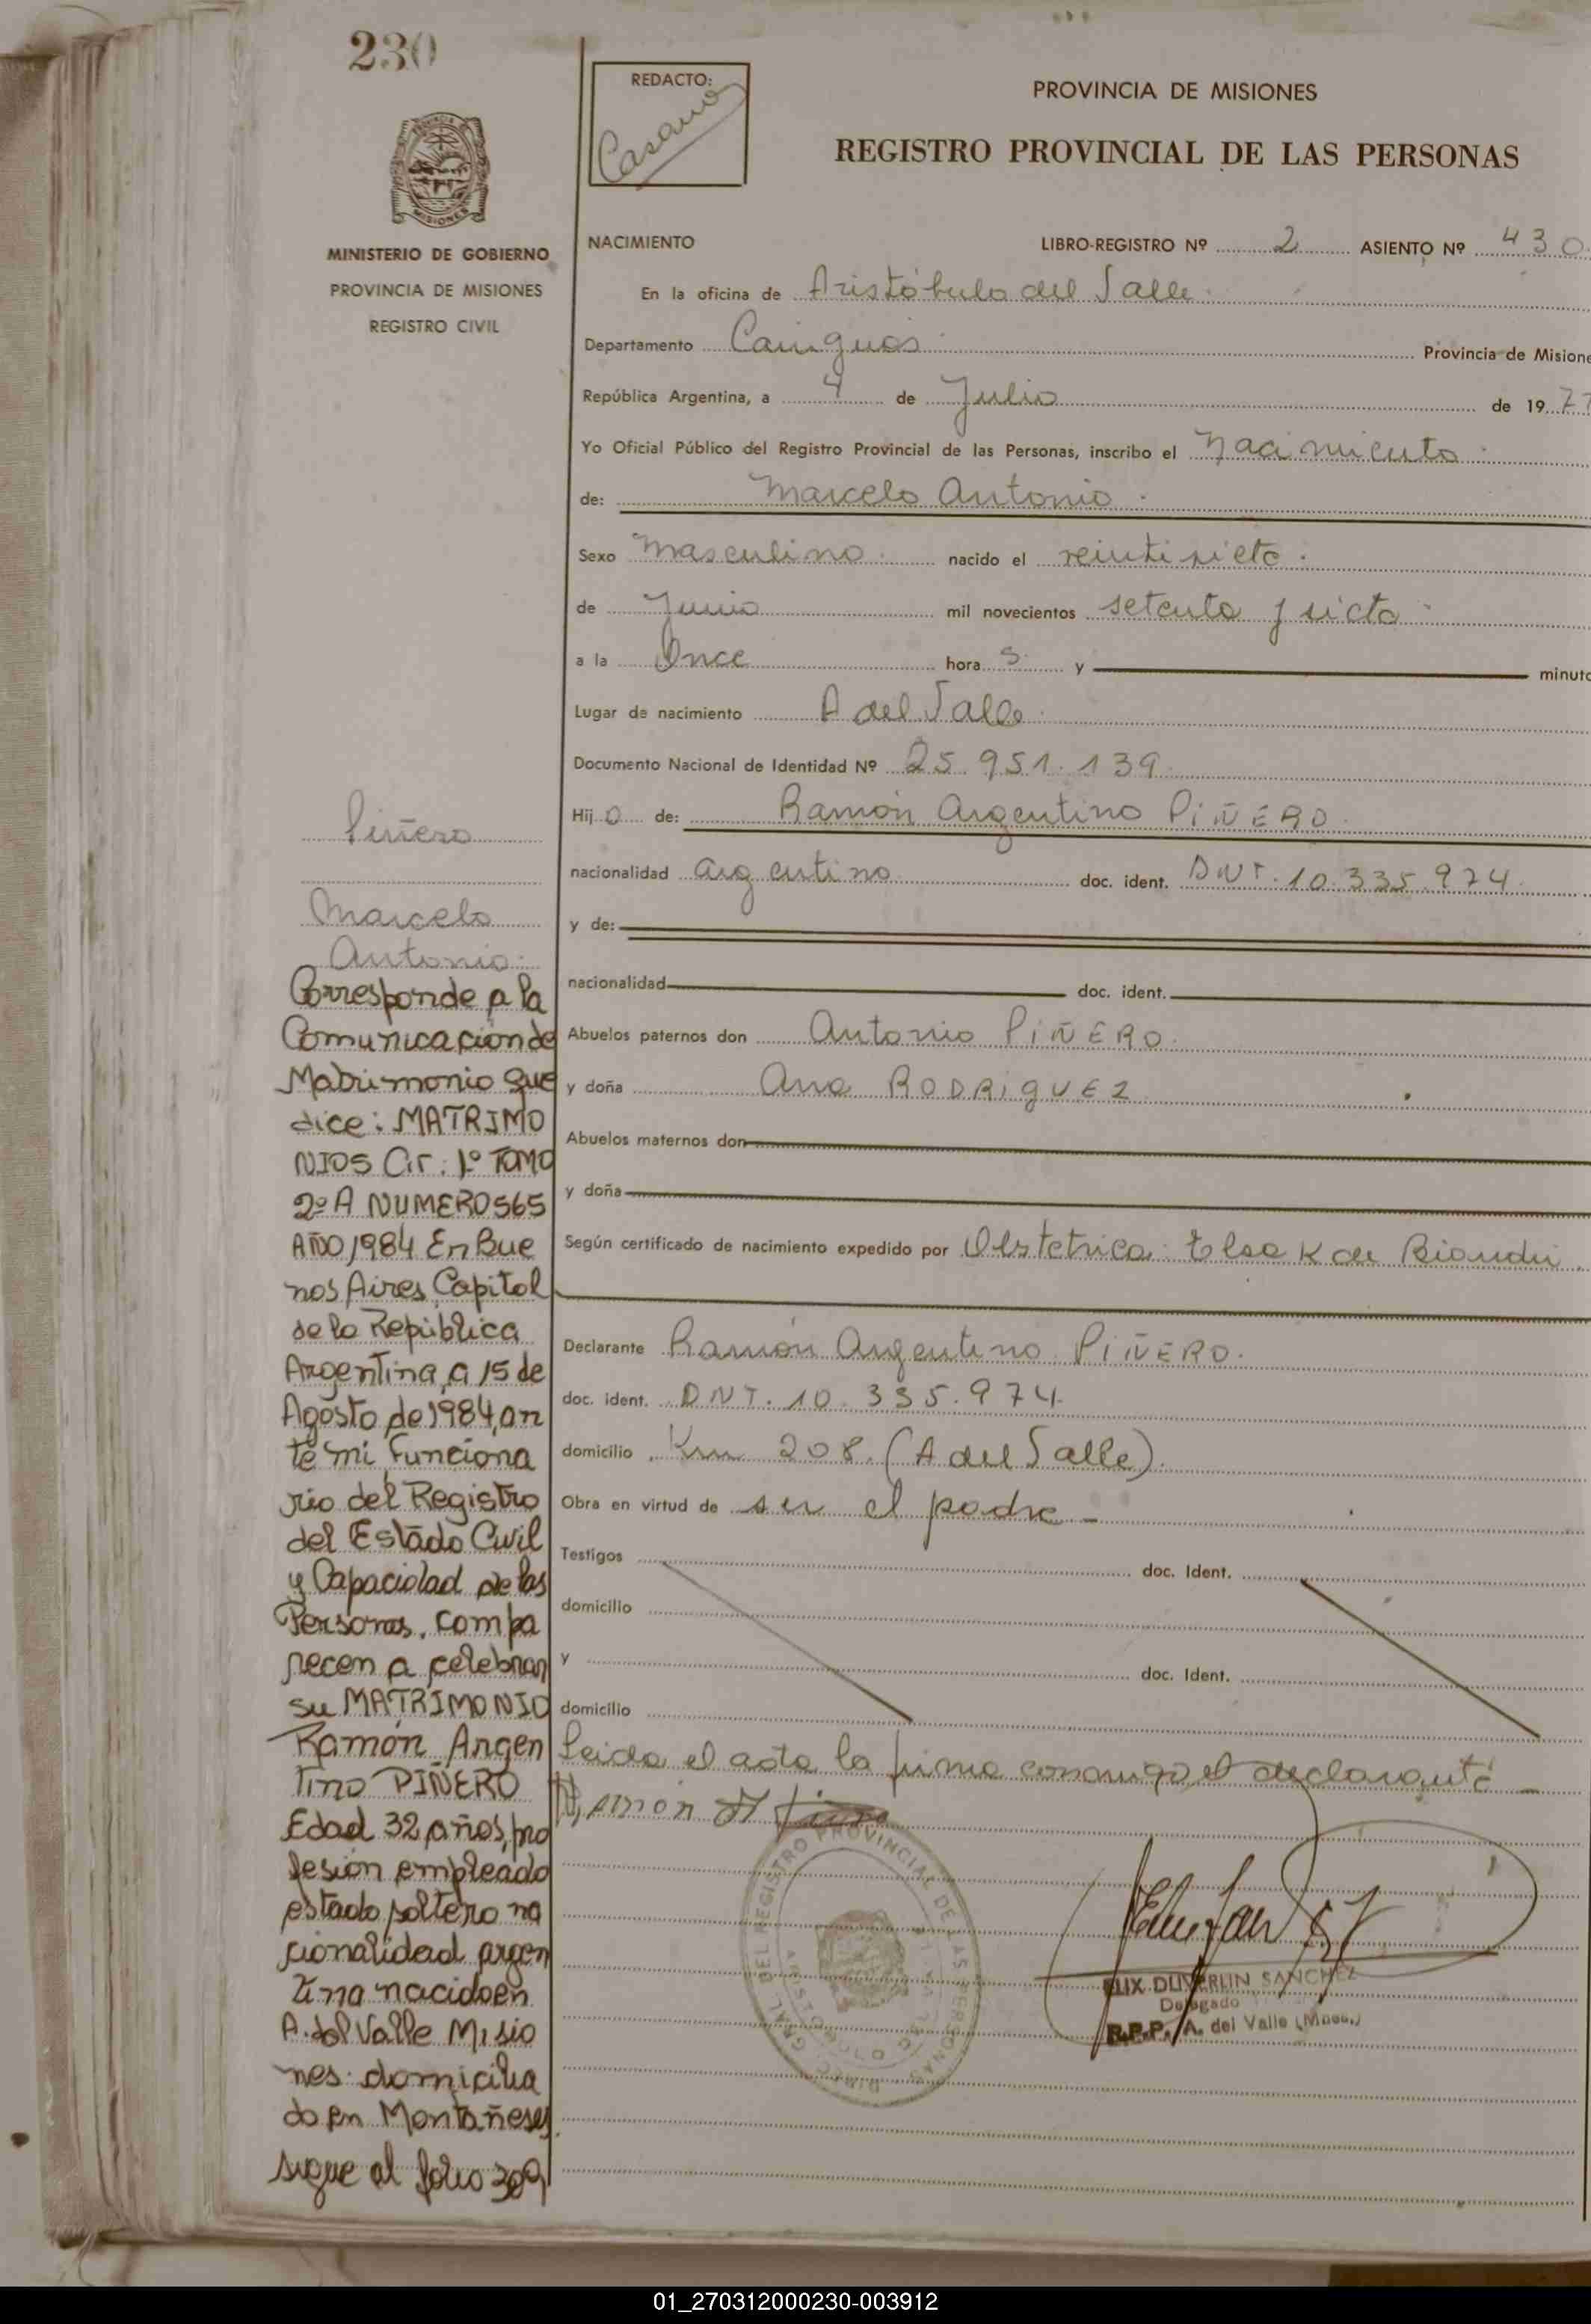 230
REDACTO:
PROVINCIA DE MISIONES
REGISTRO PROVINCIAL DE LAS PERSONAS
MISIONES
MINISTERIO DE GOBIERNO
PROVINCIA DE MISIONES
REGISTRO CIVIL
NACIMIENTO LIBRO-REGISTRO Nº 2 ASIENTO Nº 430
En la oficina de Aristóbulo del Valle
Departamento Cainguás Provincia de Misione
República Argentina, a 4 de Julio de 1977
Yo Oficial Público del Registro Provincial de las Personas, inscribo el Nacimiento
de: Marcelo Antonio
Sexo Masculino nacido el veintisiete
de Junio mil novecientos setenta y siete
a la Once hora s y minuto
Lugar de nacimiento A del Valle
Documento Nacional de Identidad Nº 25.951.139
Hijo de: Ramón Argentino PIÑERO
nacionalidad argentino doc. ident. DNI. 10.335.974
y de:
nacionalidad doc. ident.
Abuelos paternos don Antonio PIÑERO
y doña Ana RODRIGUEZ
Abuelos maternos don
y doña
Según certificado de nacimiento expedido por Obstetrica Elsa K de
Declarante Ramón Argentino PIÑERO.
doc. ident. DNI. 10.335.974
domicilio Km 208 (A del Valle)
Obra en virtud de ser el padre
Testigos doc. Ident.
domicilio
y doc. Ident.
domicilio
Leida el acta la firma conmigo el declarante
Ramón A
DIREC. GRAL. DEL REGISTRO PROVINCIAL DE LAS PERSONAS
ELIX DUVERLIN SANCHEZ
Delegado
R.P.P. A. del Valle (Mnes.)
Piñero
Marcelo
Antonio
Corresponde a la
Comunicacion de
Matrimonio que
dice: MATRIMO
NIOS Cir: 1º TOMO
2º A NUMERO 565
AÑO 1984 En Bue
nos Aires Capital
de la República
Argentina, a 15 de
Agosto de 1984, an
te mi Funciona
rio del Registro
del Estado Civil
y Capacidad de las
Personas. compa
recen a celebrar
su MATRIMONIO
Ramón Argen
tino PIÑERO
Edad 32 años, pro
fesión empleado
estado soltero na
cionalidad argen
tina nacido en
A. del Valle Misio
nes domicilia
do en Montañeses
sigue al folio 309
01_270312000230-003912